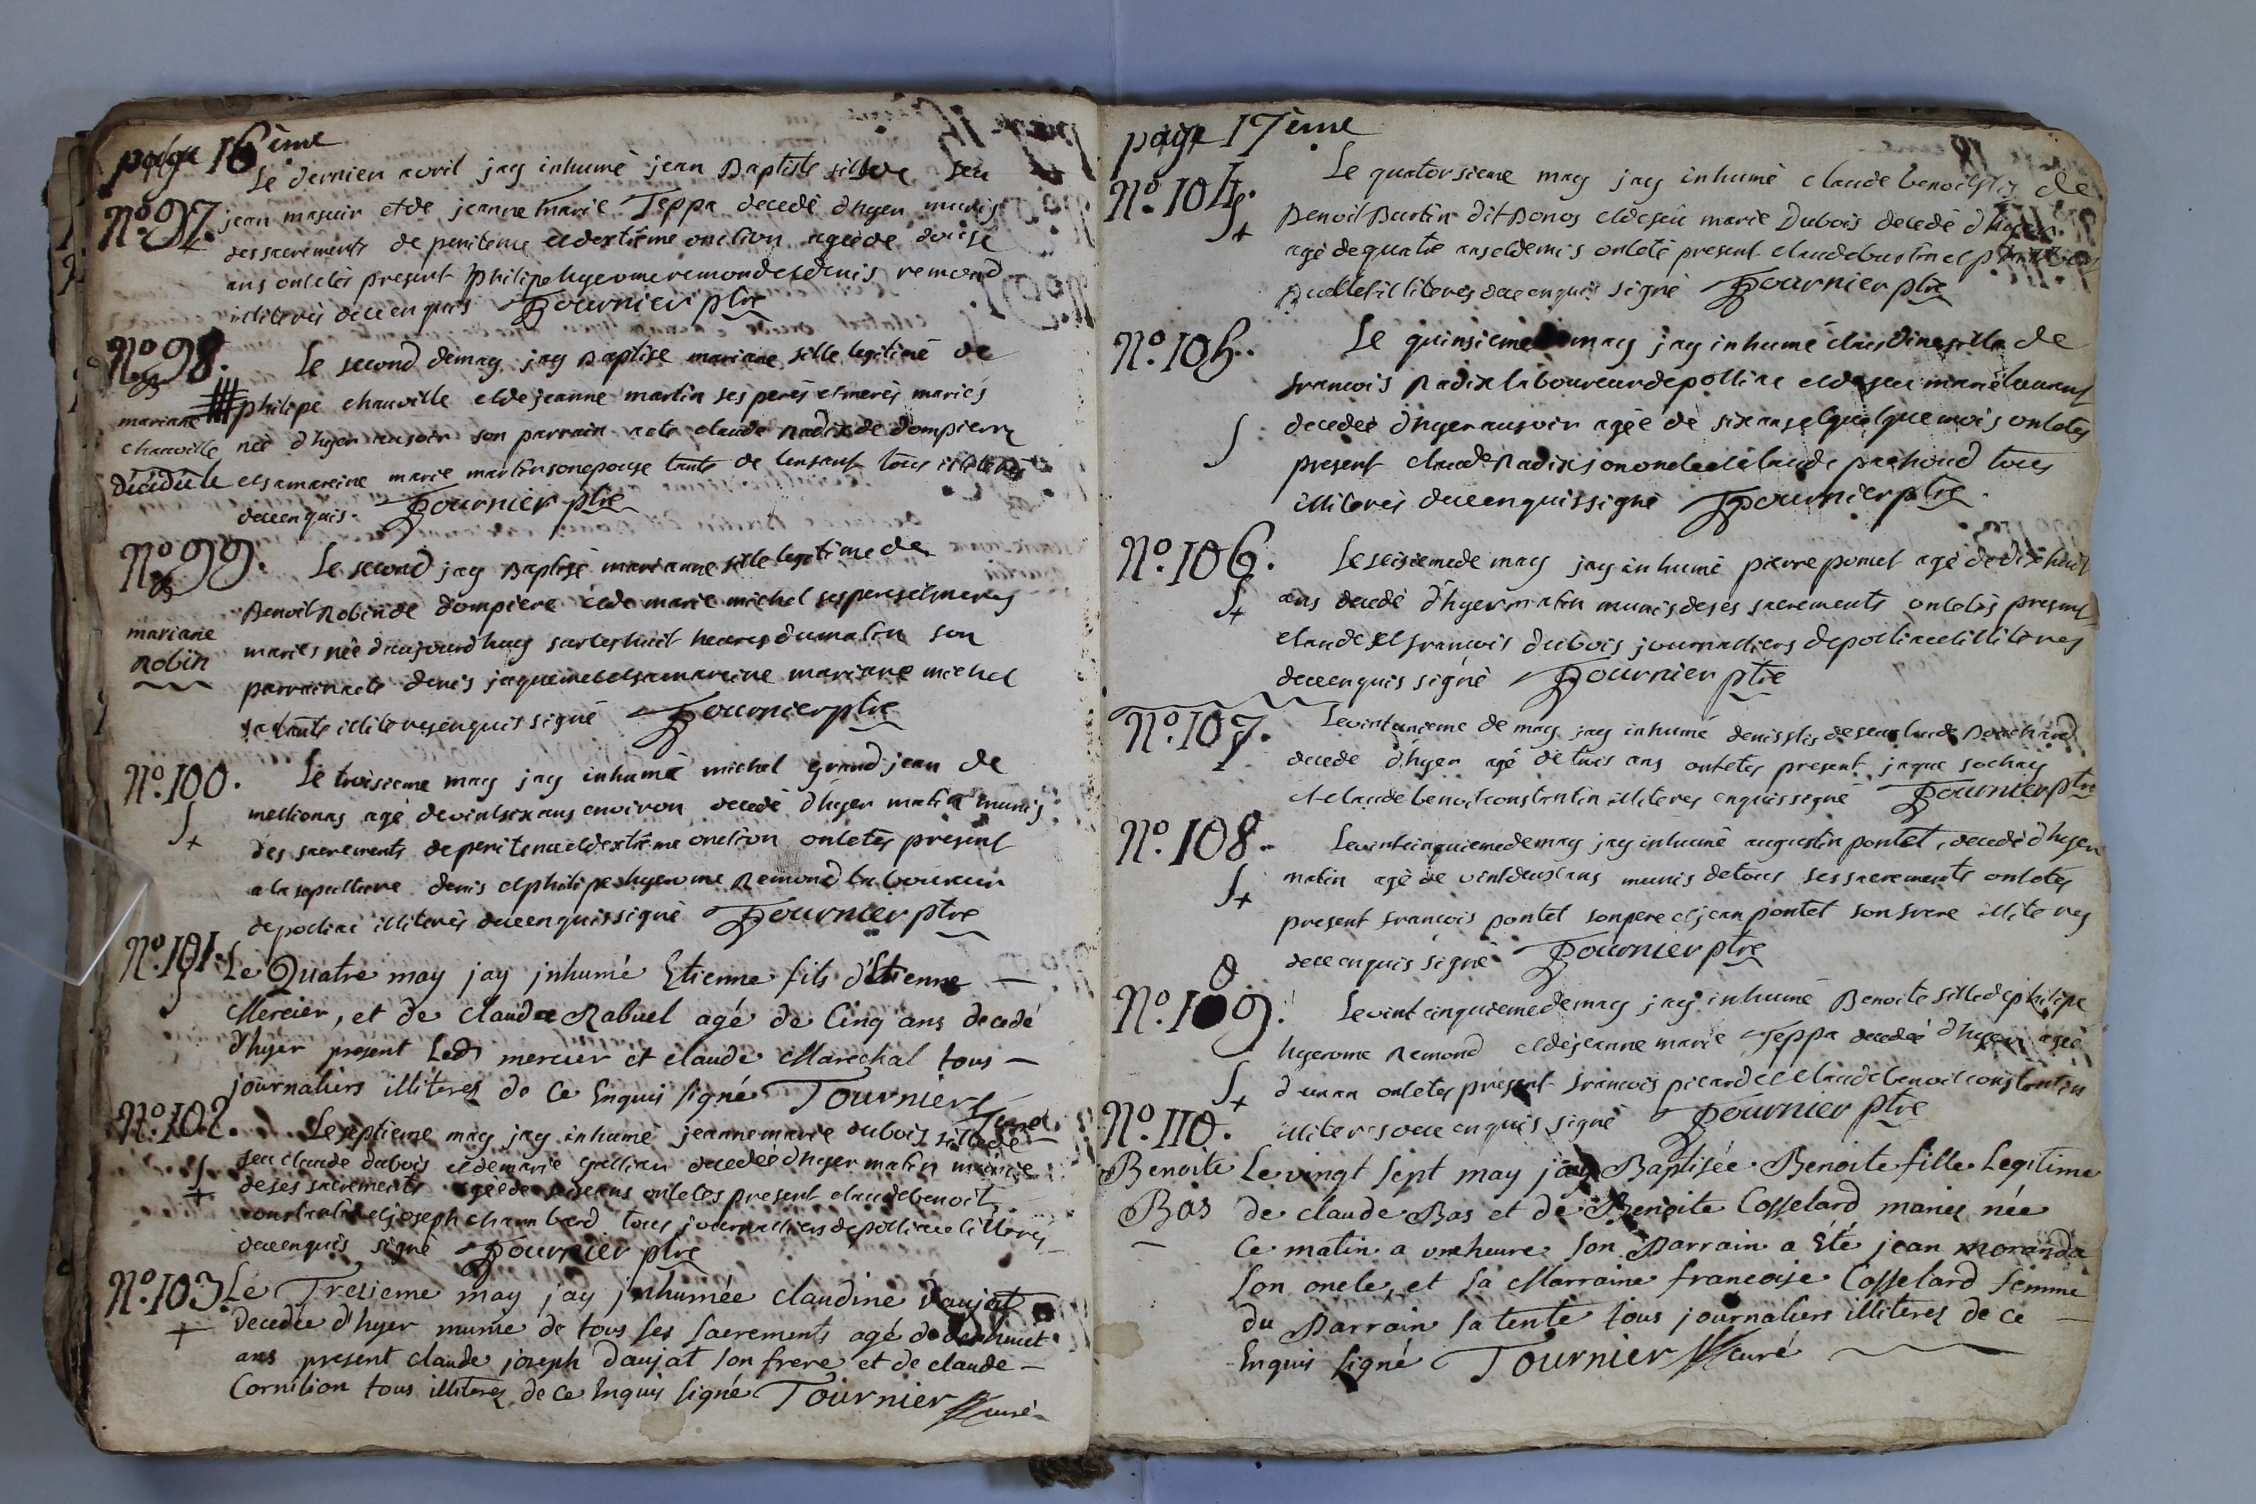 page 16ème
Le dernier avril jay inhumé jean Baptiste fils de feu
N.º 97. jean masuir et de jeanne marie Teppa decedé d'hyer munis
des sacrements de penitence et dextrême onction agé de douse
ans ont étés present philipe hyerome remond et denis remond
illiterés de ce enquis Tournier ptre
N.º 98. Le second de may jay Baptisé mariane fille legitime de
philipe chauville et de jeanne martin ses perés et merés mariés
mariane
chauville née d'hyer au soir son parrain a eté claude Radix de dompierre
et sa mareine marie martin son epouse tante de lenfant tous illiterés
de ce enquis. Tournier ptre
N.º 99. Le second jay Baptisé marianne fille legitime de
Benoit Robin de dompiere et de marie michel ses peres et meres
mariane
Robin
mariés née d'aujourd'huy sur les huit heures du matin son
parrain a eté denis jaquemet et sa mareine mariane michel
sa tante illiteres enquis signé Tournier ptre
N.º 100. Le troisieme may jay inhumé michel grand jean de
mellionas agé de vint six ans environ decedé d'hyer matin munis
des sacrements de penitence et dextrême onction ont etés present
a la sepulture denis et philipe hyerome Remond laboureur
de polliac illiterés de ce enquis signé Tournier ptre
N.º 101. Le Quatre may jay jnhumé Etienne fils d'Etienne
Mercier, et de claudie Rabuel agé de Cinq ans decedé
d'hyer present led mercier et claude Marechal tous
journaliers illiterez de Ce Enquis signé Tournier
curé
N.º 102. Le septieme may jay inhumé jeanne marie dubois fille de
feu claude dubois et de marie decedée d'hyer matin munie
de ses sacrements agée de seise ans ont etes present claude benoit
constantin et joseph chambard tous journaliers de polliac illiterés
de ce enquis signé Tournier ptre
N.º 103. Le Tresieme may jay jnhumée claudine daujat
+ Decedée d'hyer munie de tous ses sacrements agé de
ans present claude joseph daujat son frere et de claude
Cornilion tous illiterez de Ce Enquis signé Tournier curé
page 17ème
N.º 104. Le quatorsieme may jay inhumé claude benoit fils de
Benoit Burtin dit Bonos et de feu marie Dubois decedé d'hyer
agé de quatre ans et demis ont eté present claude burtin et
illiterés de ce enquis signé Tournier ptre
N.º 105. Le quinsieme may jay inhumé claudine fille de
francois Radix laboureur de polliac et de feu marie
decedée d'hyer au soir agée de six ans et quelque mois ont etés
present claude Radix son oncle et claude pachoud tous
illiterés de ce enquis signé Tournier ptre.
N.º 106. Le seisieme de may jay inhumé pierre pomet agé de dix huit
ans decedé d'hyer matin munis de ses sacrements ont etés present
claude et francois dubois journalliers de polliac illiteres
de ce enquis signé Tournier ptre
N.º 107. Le vint unieme de may jay inhumé denis fils de feu claude Bouchard
decedé d'hyer agé de trois ans ont etes present jaque sochay
et claude benoit constantin illiteres enquis signé Tournier ptre
N.º 108. Le vint cinquieme de may jay inhumé augustin pontet, decedé d'hyer
matin agé de vint deux ans munis de tous ses sacrements ont etés
present francois pontet son pere et jean pontet son frere illiteres
de ce enquis signé Tournier ptre
N.º 109. Le vint cinquieme de may jay inhumé Benoite fille de philipe
hyerome Remond et de jeanne marie Teppa decedée d'hyer agée
d'un an ont etes present francois picard et claude benoit constantin
illiteres de ce enquis signé Tournier ptre
N.º 110.
Benoite
Bas
Le vingt sept may jay Baptisée Benoite fille Legitime
de claude Bas et de Benoite Cosselard mariez née
Ce matin a une heure son Parrain a Eté jean moranda
son oncle, et sa Marraine francoise Cosselard femme
du Parrain sa tente tous journaliers illiterez de ce
Enquis signé Tournier curé